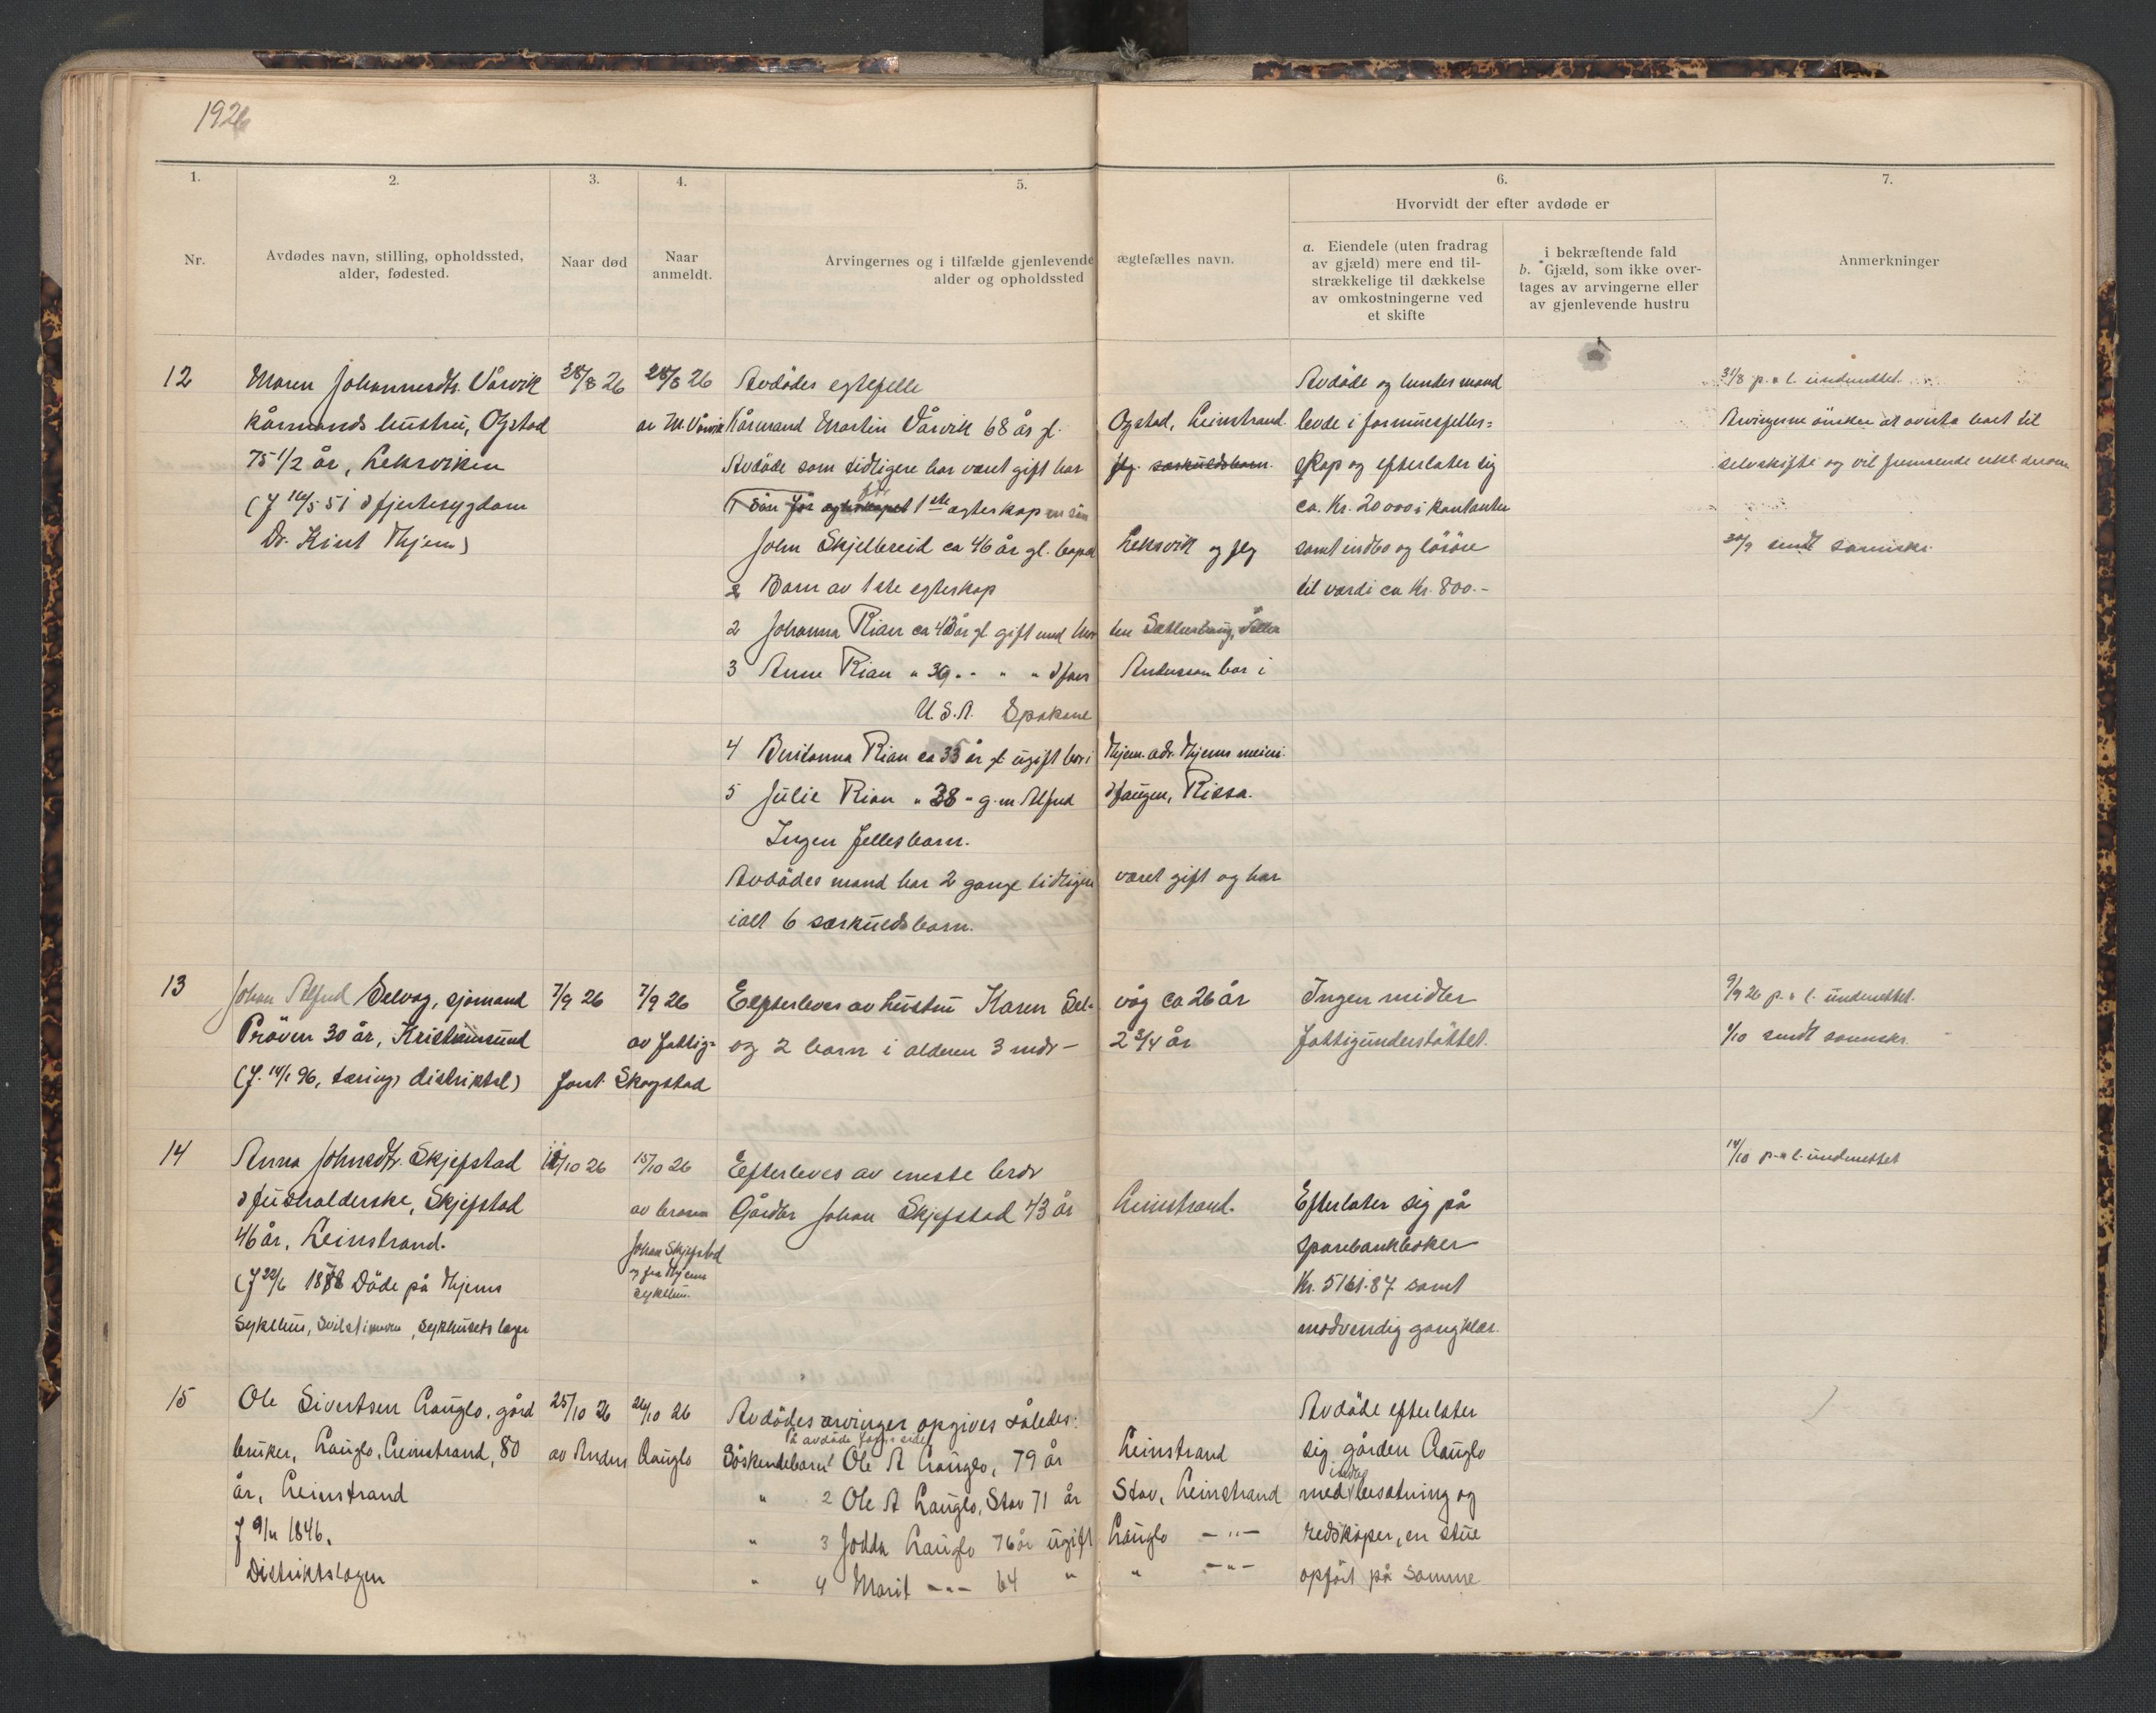 1926
1. 2. 3. 4. 5. 6. 7.
Hvorvidt der efter avdøde er
Nr.
Avdødes navn, stilling, opholdssted,
alder, fødested.
Naar død
Naar
anmeldt.
Arvingernes og i tilfælde gjenlevende ægtefælles navn.
alder og opholdssted
a. Eiendele (uten fradrag
av gjæld) mere end til-
strækkelige til dækkelse
av omkostningerne ved
et skifte
i bekræftende fald
b. Gjæld, som ikke over-
tages av arvingerne eller
av gjenlevende hustru
Anmerkninger
12
Maren Johannesdtr. Vårvik
kårmands hustru, Ogstad
75 1/2 år, Leksviken
(f 16/5 51 Hjertesygdom
Dr. Kint Thjem)
28/8 26
28/8 26
av M. Vårvik
Avdødes egtefelle
Kårmand Martin Vårvik 68 år gl. Ogstad, Leinstrand
Avdøde som tidligere har været gift har flg. særkuldsbarn.
1 Søn før egteskapet 1ste egteskap en søn
John Skjelbreid ca 46 år gl. Leksvik og flg
2 Barn av 1ste egteskap
2 Johanna Rian ca 43 år gl gift med
3 Anne Rian " 39 " " " Anderson bor i
U.S.A. Spokane
4 Beritanna Rian ca 33 år gl ugift bor i Thjem. adr. Thjems meieri.
5 Julie Rian " 38 " g.m Alfred Haugen, Rissa.
Ingen fellesbarn.
Avdødes mand har 2 gange tidligere været gift og har
ialt 6 særkuldsbarn.
Avdøde og hendes mand
levde i formuesfelles=
skap og efterlater sig
ca. Kr. 20000 i kontanter
samt indbo og løsøre
til værdi ca Kr. 800.-
31/8 p.a l. underrettet.
Arvingerne ønsker at overta boet til
selvskifte og vil fremsende erkl. derom
20/9 sendt
13
Johan Alfred Selvåg, sjømand
Prøven 30 år, Kristiansund
(f. 14/1 96, tæring, distriktsl)
7/9 26
7/9 26
av Fattig=
forst. Skogstad
Efterleves av hustru Karen Sel- våg ca 26 år
og 2 barn i alderen 3 mdr - 2 3/4 år
Ingen midler
Fattigunderstøttet.
9/9 26 p.a l. underrettet.
1/10 sendt
14
Anna Johnsdtr. Skjefstad
Husholderske, Skjefstad
46 år, Leinstrand.
(f 22/6 1878 Døde på Thjems
Sykehus, , Sykehusets læge
/10 26
15/10 26
av broren
Johan Skjefstad
og fra Thjems
Sykehus.
Efterleves av eneste bror
Gårdbr Johan Skjefstad 43 år Leinstrand.
Efterlater sig på
sparebankbøker
Kr. 5161.87 samt
nødvendig gangklær.
14/10 p.a l. underrettet
15
Ole Sivertsen Lauglo, gård
bruker, Lauglo, Leinstrand, 80
år, Leinstrand
f 9/11 1846.
Distriktslægen
25/10 26
26/10 26
av Anders Lauglo
Avdødes arvinger opgives således:
På avdøde fars side
Søskendebarn 1 Ole A Lauglo, 79 år Leinstrand
" 2 Ole A Lauglo, Stav 71 år Stav, Leinstrand
" 3 Jodda Lauglo 76 år ugift Lauglo -"-
" 4 Marit -"- 64 " " -"-
Avdøde efterlater
sig gården Lauglo
med indbo besætning og
redskaper, en stue
opført på samme